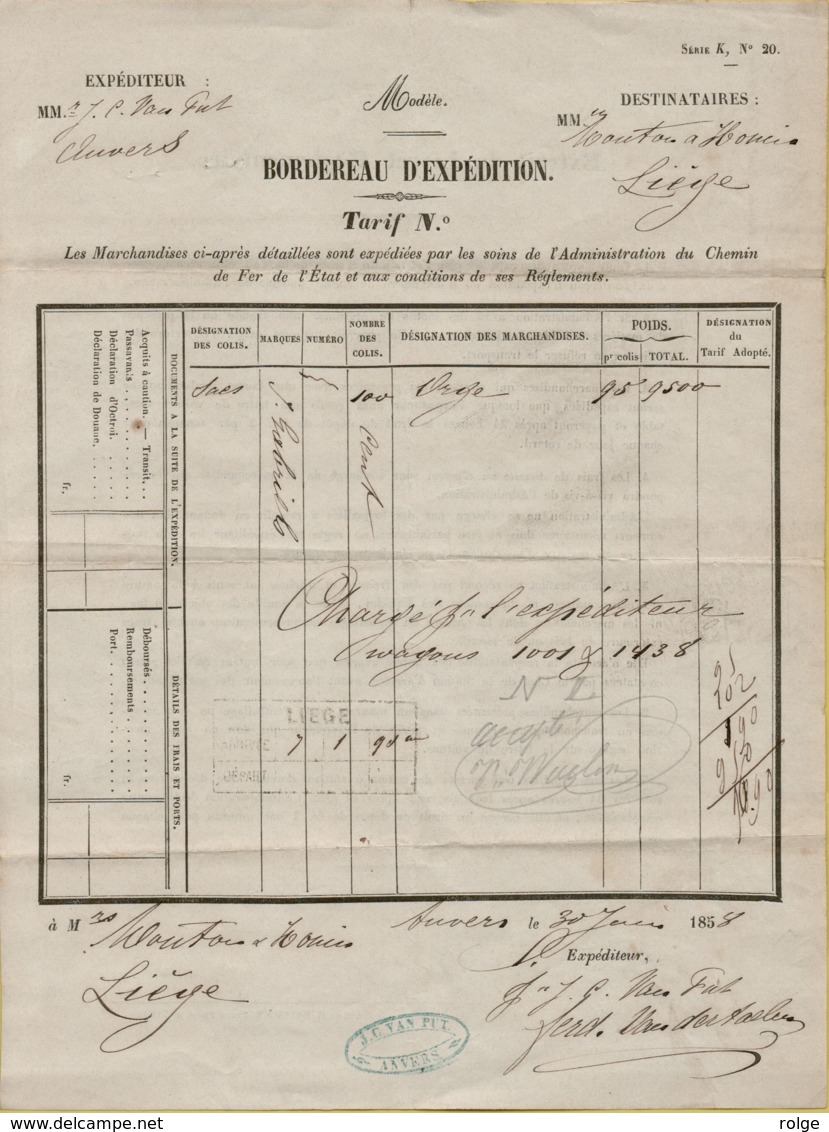 Série K, N° 20.
EXPÉDITEUR :
MM.rs J. C. Van Put
Anvers
Modèle.
DESTINATAIRES :
MM
Mouton & Homin
Liège
BORDEREAU D'EXPÉDITION.
Tarif N.°
Les Marchandises ci-après détaillées sont expédiées par les soins de l'Administration du Chemin
de Fer de l'État et aux conditions de ses Réglements.
DOCUMENTS A LA SUITE DE L'EXPÉDITION.
Acquits à caution. — Transit.
Passavants
Déclaration d'Octroi.
Déclaration de Douane.
fr.
DÉTAILS DES FRAIS ET PORTS.
Déboursés
Remboursements
Port.
fr.
DÉSIGNATION DES COLIS.
MARQUES
NUMÉRO
NOMBRE DES COLIS.
DÉSIGNATION DES MARCHANDISES.
POIDS.
pr colis
TOTAL.
DÉSIGNATION du Tarif Adopté.
Sacs
100
Orge
95
9500
cent
Chargé pr l'expéditeur
wagons 1001 & 1438
N 2
accepté
LIÉGE
7 1
DÉPART
à M rs
Mouton & Homin
Liège
Anvers le 30 Juin 1858
Expéditeur,
J. C. Van Put
Ferd.
J. C. VAN PUT
ANVERS
rolge